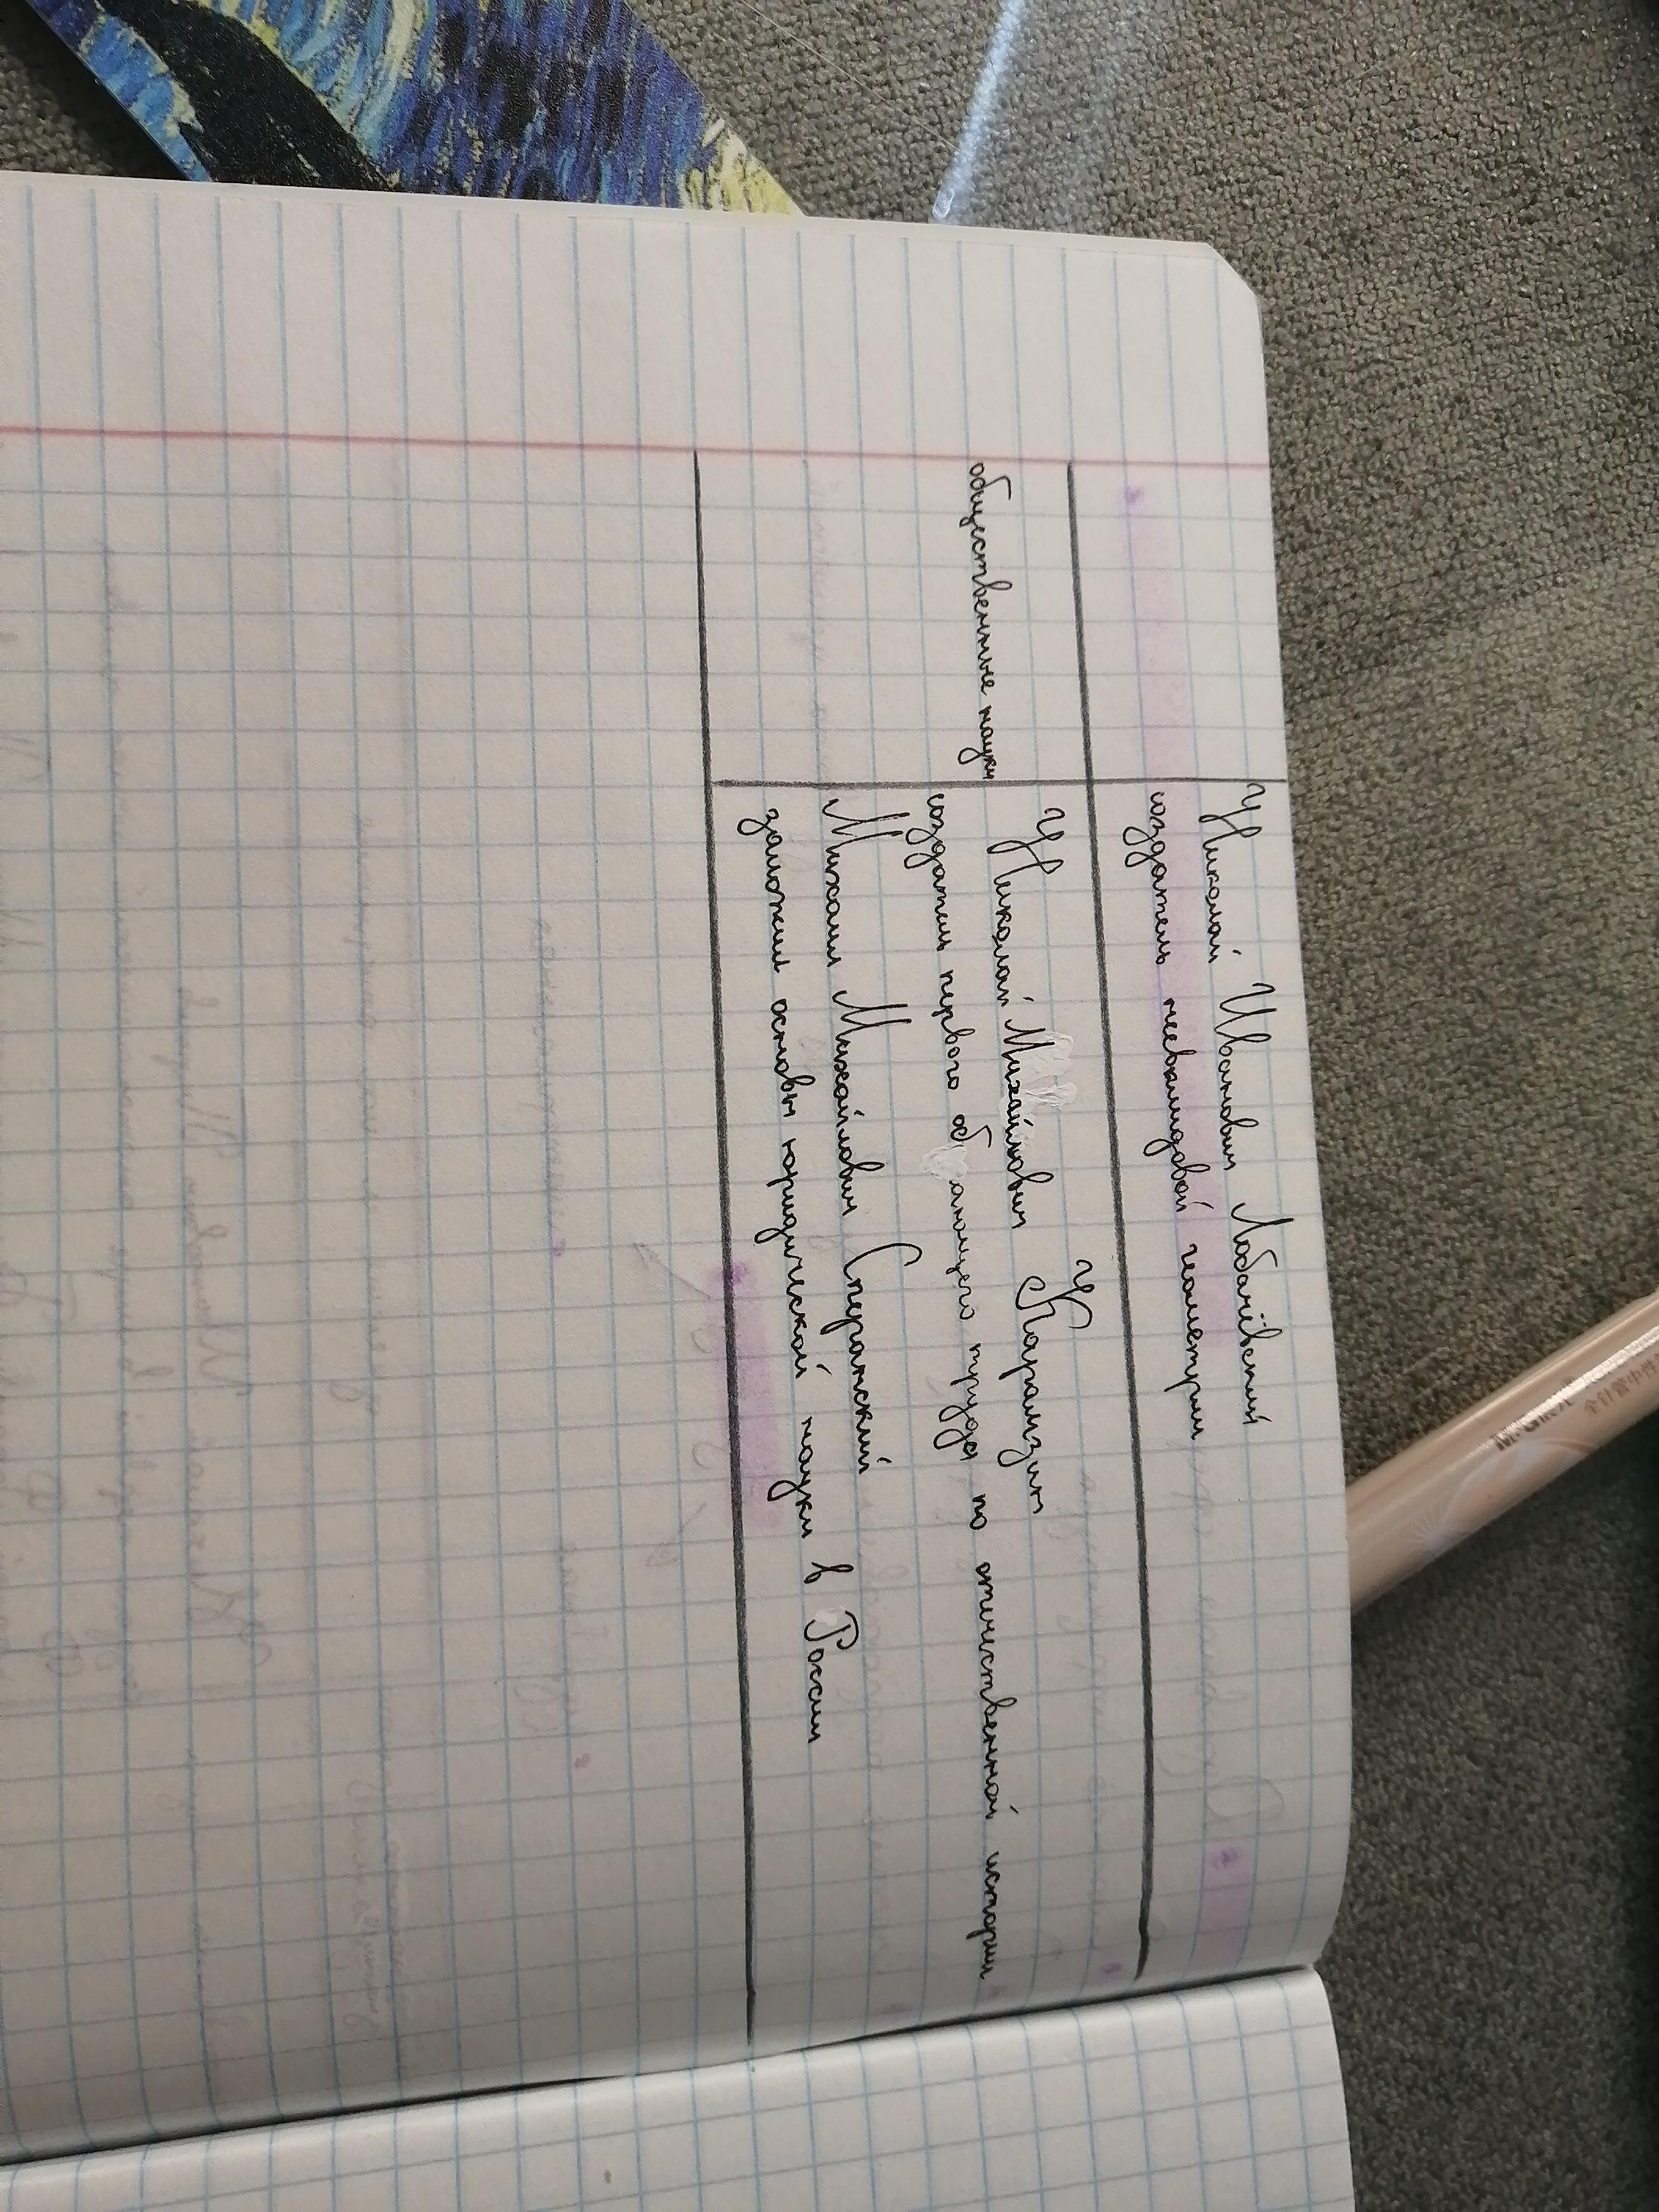 Николай Иванович Лобачевский
создатель неевклидовой геометрии
общественные науки
Николай Михайлович Карамзин
создатель первого об ающего труда по отечественной истории
Михаил Михайлович Сперанский
заложил основы юридической науки в России
M&G